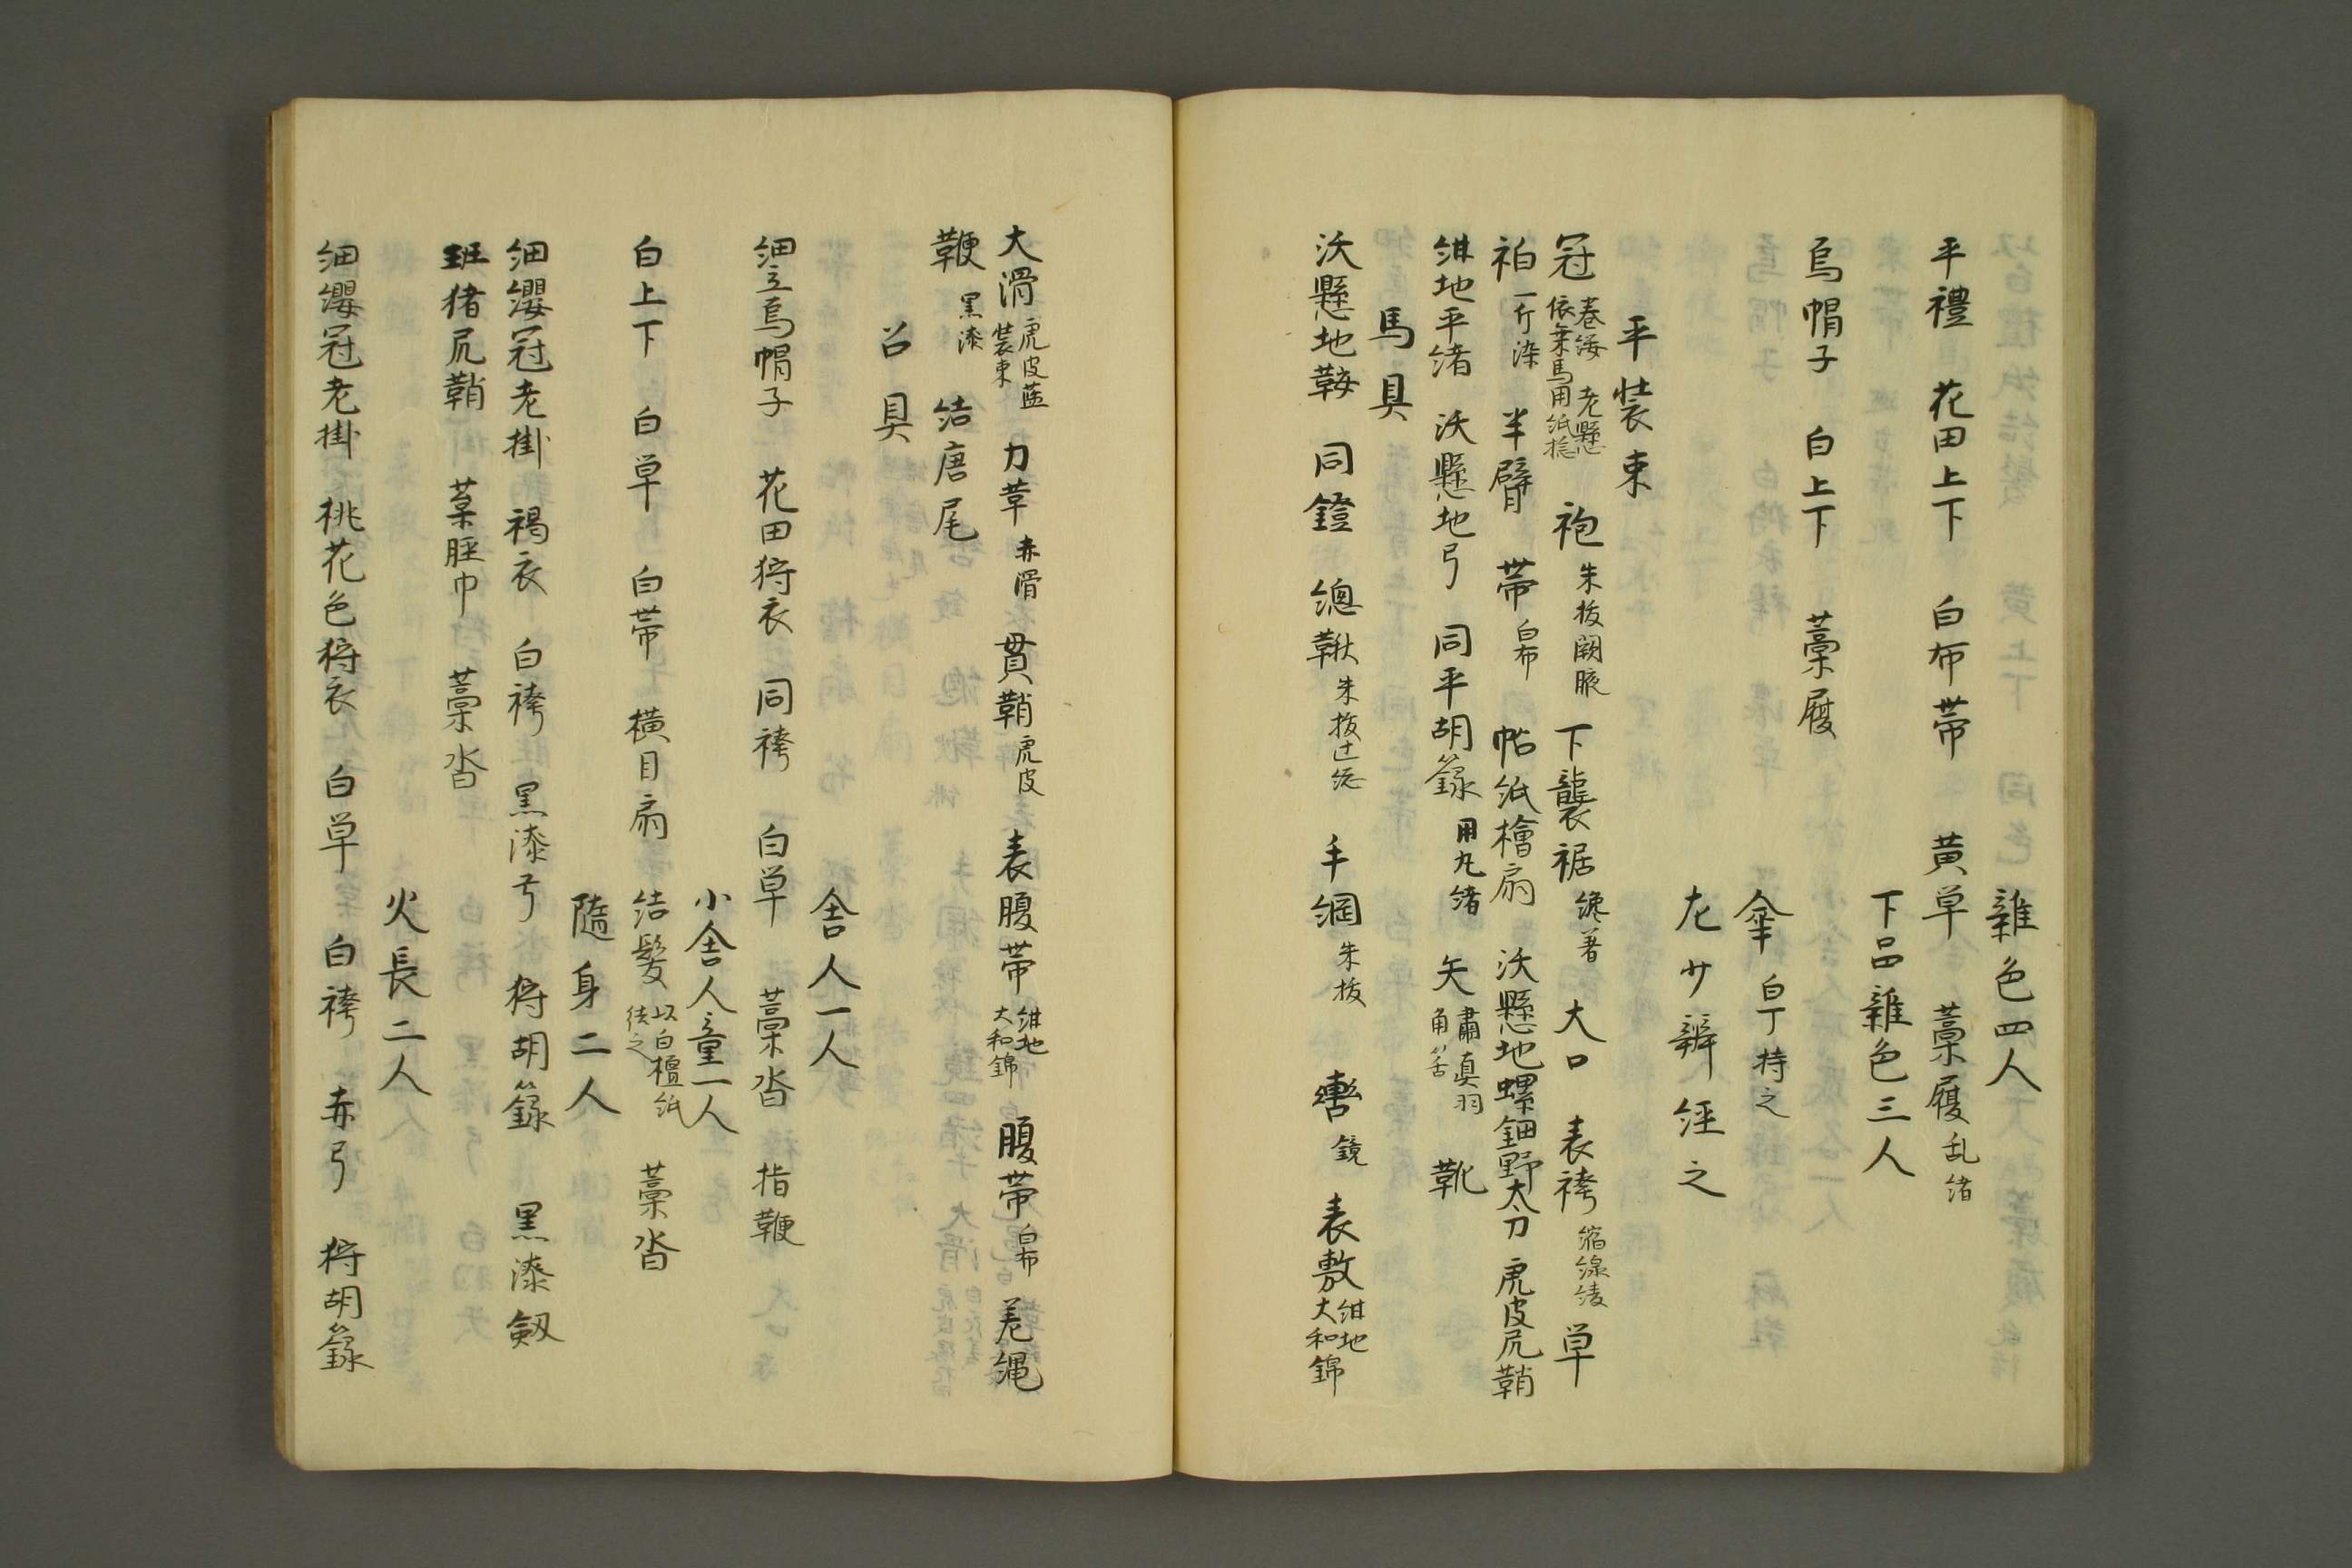 雜色四人
平禮 花田上下 白布帯 黄単 藁履 乱緒
下品雜色三人
烏帽子 白上下 藁履
傘 白丁持之
尤少辨経之
平装束
冠 巻纓 老懸 依乗馬用紙捻 袍 朱抜闕腋 下襲裾 纔著 大口 表袴 縮線綾 単
袙 一斤染 半臂 帯 白布 帖紙檜扇 沃懸地螺鈿野太刀 虎皮尻鞘
紺地平緒 沃懸地弓 同平胡籙 用丸緒 矢 粛真羽 角筈 靴
馬具
沃懸地鞍 同鐙 總鞦 朱抜辻総 手綱 朱抜 轡 鏡 表敷 紺地大和錦
大滑 虎皮藍装束 力革 赤滑 貫鞘 虎皮 表腹帯 紺地大和錦 腹帯 白布 差縄
鞭 黒漆 結唐尾
召具
舎人一人
細立烏帽子 花田狩衣 同袴 白単 藁沓 指鞭
小舎人童一人
白上下 白単 白帯 横目扇 結髪 以白檀紙結之 藁沓
隨身二人
細纓冠老掛 褐衣 白袴 黒漆弓 狩胡籙 黒漆剱
斑猪尻鞘 藁脛巾 藁沓
火長二人
細纓冠老掛 桃花色狩衣 白単 白袴 赤弓 狩胡籙